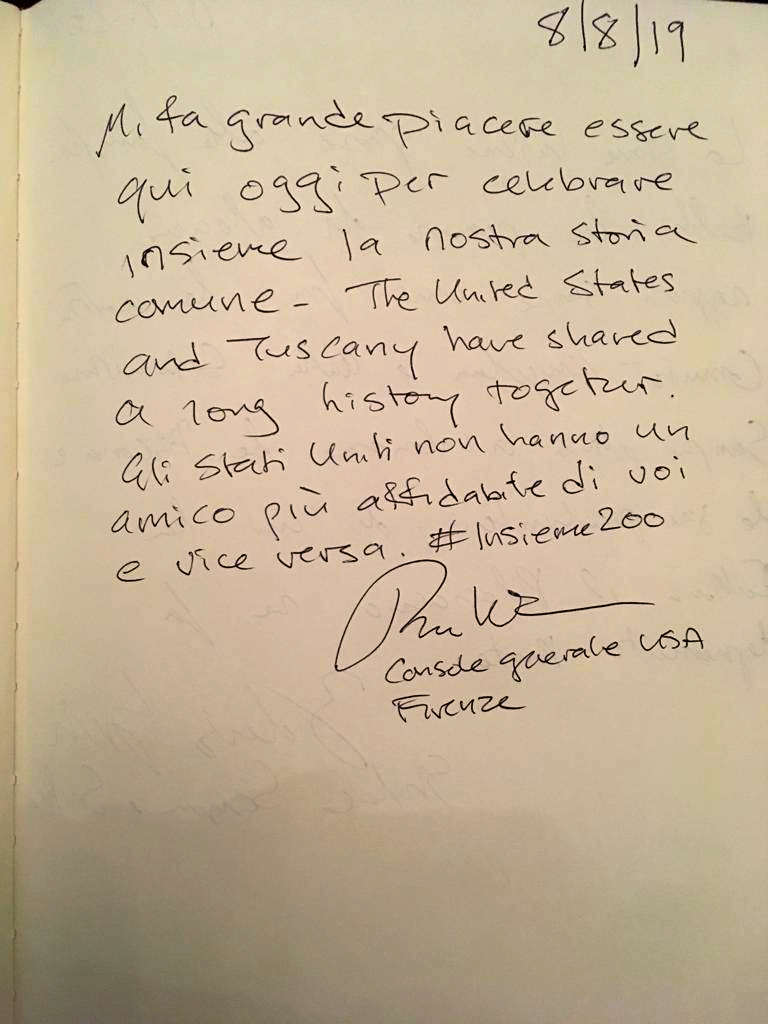 8/8/19
Mi fa grande piacere essere
qui oggi per celebrare
insieme la nostra storia
comune - The United States
and Tuscany have shared
a long history together.
Gli Stati Uniti non hanno un
amico più affidabile di voi
e vice versa. #Insieme200
Console generale USA
Firenze